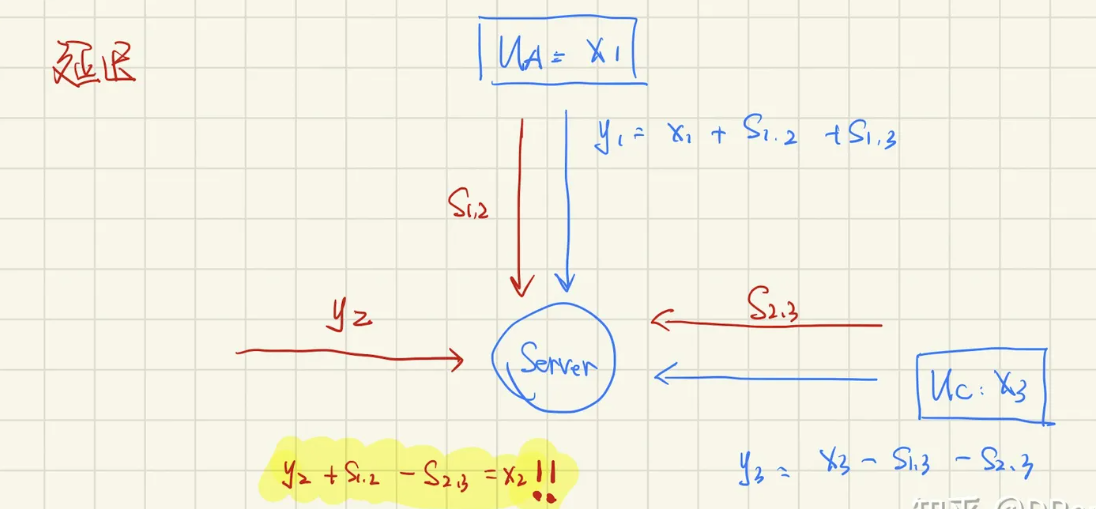 延迟
U_A = x_1
y_1 = x_1 + S_{1.2} + S_{1.3}
S_{1,2}
y_2
S_{2.3}
Server
U_C: x_3
y_2 + S_{1.2} - S_{2.3} = x_2!!
y_3 = x_3 - S_{1.3} - S_{2.3}